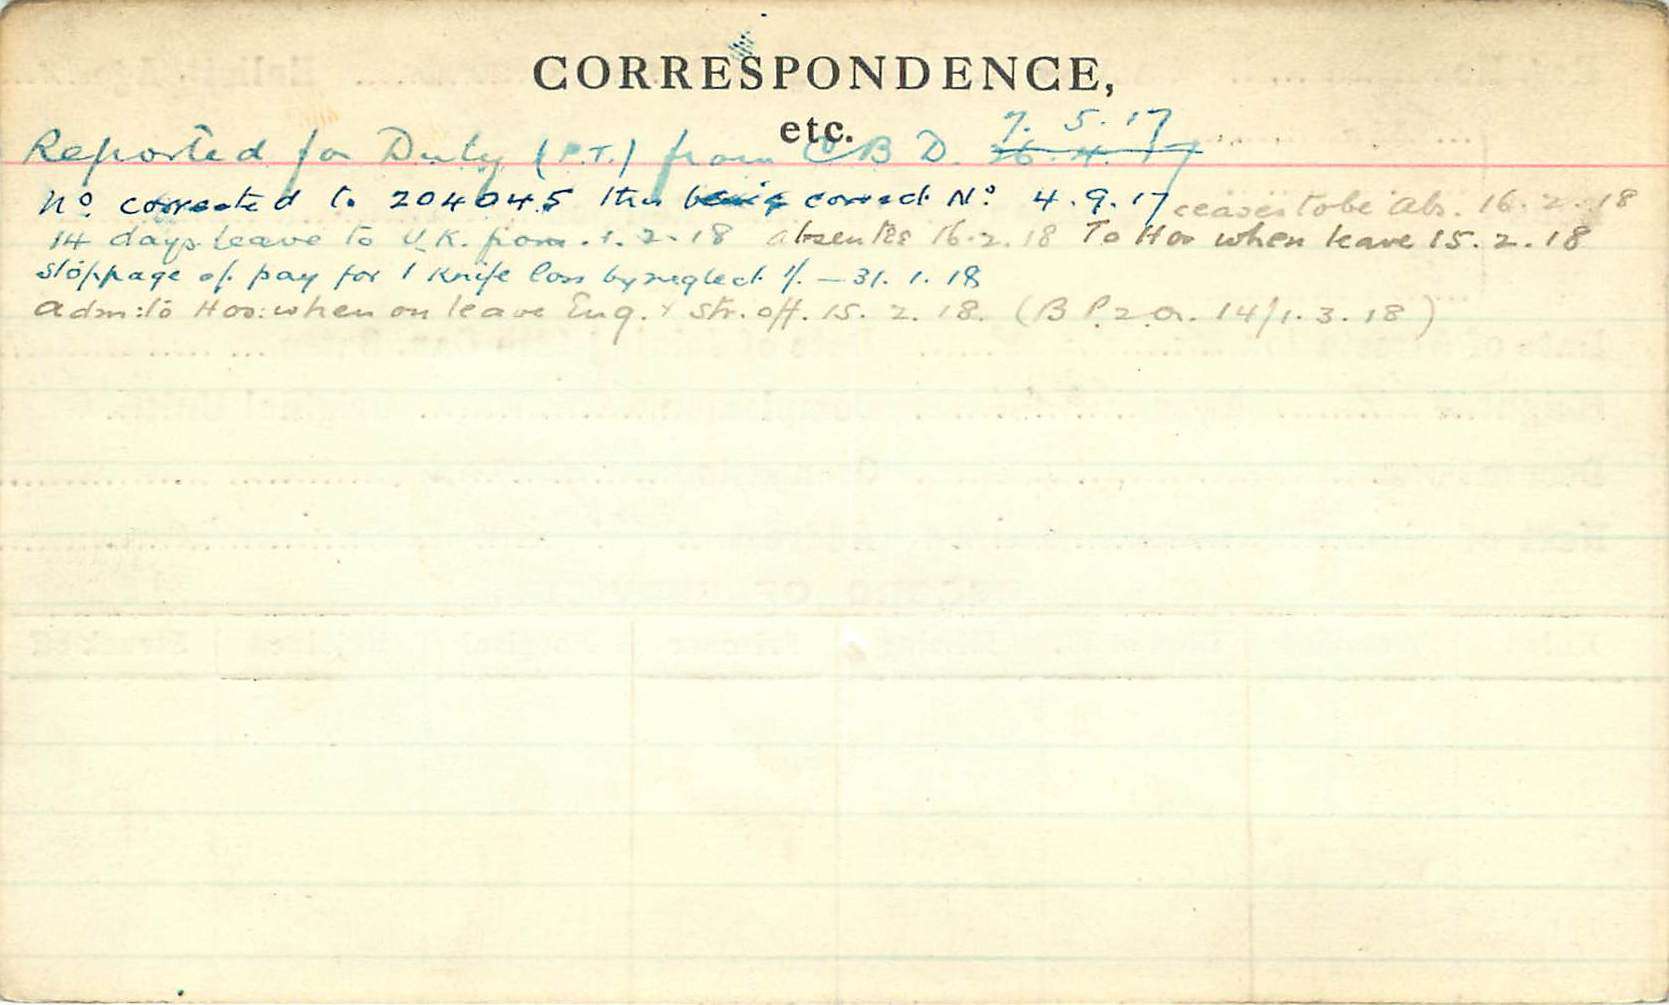 CORRESPONDENCE,
etc.
7. 5. 17
Reported for Duty (P.T.) from C B D. 26. 4. 17
No. corrected to 204045 this being correct No. 4.9.17 ceases to be Abs. 16.2.18
14 days leave to U.K. from. 1.2.18 absentee 16.2.18 To Hos when leave 15.2.18
stoppage of pay for 1 knife loss by neglect 1/. — 31.1.18
adm: to Hos: when on leave Eng. & Str. off. 15. 2. 18. (B P.2.O. 14/1.3.18)